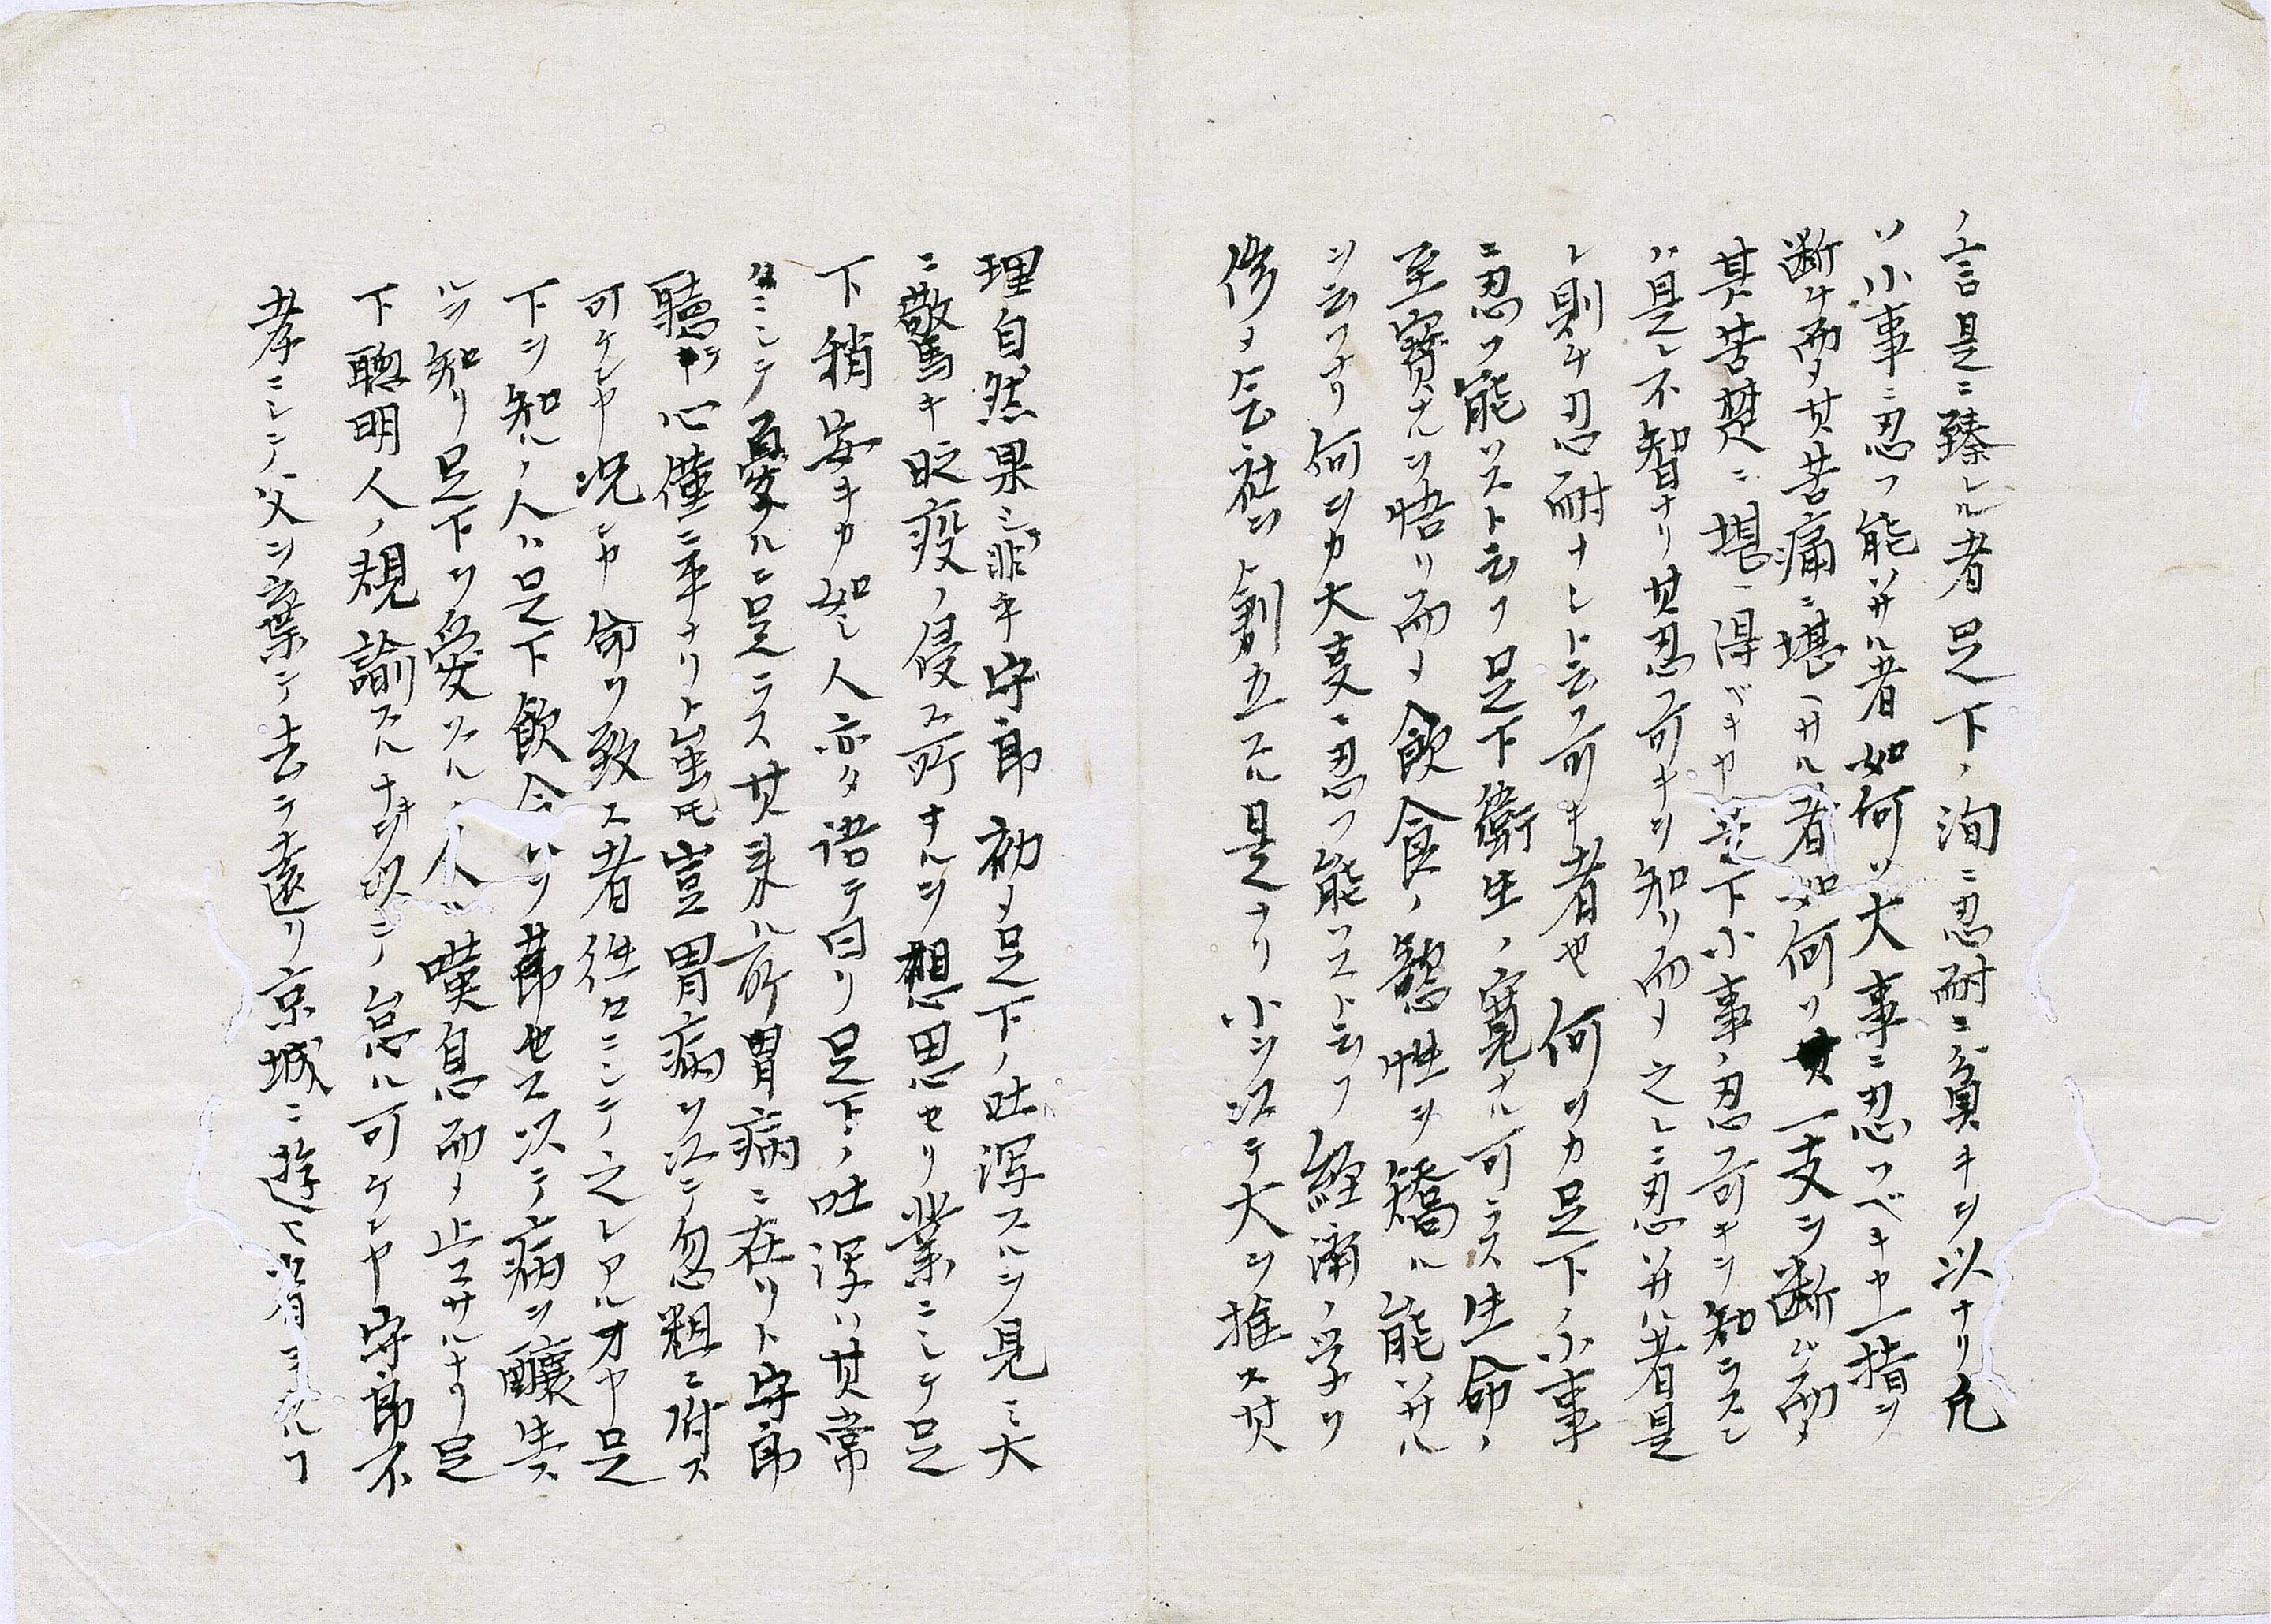 ノ言是ニ臻レル者足下ノ洵ニ忍耐ニ負キヲ以ナリ凡
ソ小事ニ忍フ能ハサル者如何ソ大事ニ忍フベキヤ一指ヲ
断ケ而メ其苦痛ニ堪ヘサル者如何ソ一支ヲ断シ而メ
其苦楚ニ堪ヘ得ベキヤ足下小事ノ忍フ可キヲ知ラスン
ハ是レ不智ナリ其忍フ可キヲ知リ而メ之レニ忍ハサル者是
レ則チ忍耐ナシト云フ可キ者也何ヲカ足下ノ小事
ニ忍フ能ハスト云フ足下衛生ノ寛ナル可ラス生命ノ
至寶ナルヲ悟リ而メ飲食ノ慾性ヲ矯ル能ハサル
ヲ云フナリ何ヲカ大事ニ忍フ能ハスト云フ経済ノ学ヲ
修メ会社ヲ創立スル是ナリ小ヲ以テ大ヲ推ス其
理自然果シテ非キ守郎初メ足下ノ吐瀉スルヲ見ミ大
ニ驚キ時疫ノ侵ス所ナルヲ想思セリ業ニシテ足
下稍安キカ如シ人亦タ語テ曰リ足下ノ吐瀉ハ其常
ニシテ憂ルニ足ラス其来ル所胃病ニ在リト守郎
聴テ心僅ニ平ナリト雖モ豈胃病ヲ以テ忽粗ニ附ス
可ケンヤ况ンヤ命ヲ致ス者往々ニシテ之レアルオヤ足
下ヲ知ルノ人ハ足下飲食ヲ節セス以テ病ヲ醸生ス
ルヲ知リ足下ヲ愛スルノ人ハ嘆息而メ止マサルナリ足
下聰明人ノ規諭スルナキヲ以テ怠ル可ケンヤ守郎不
孝ニシテ父ヲ棄テ去テ遠リ京城ニ遊ヒ